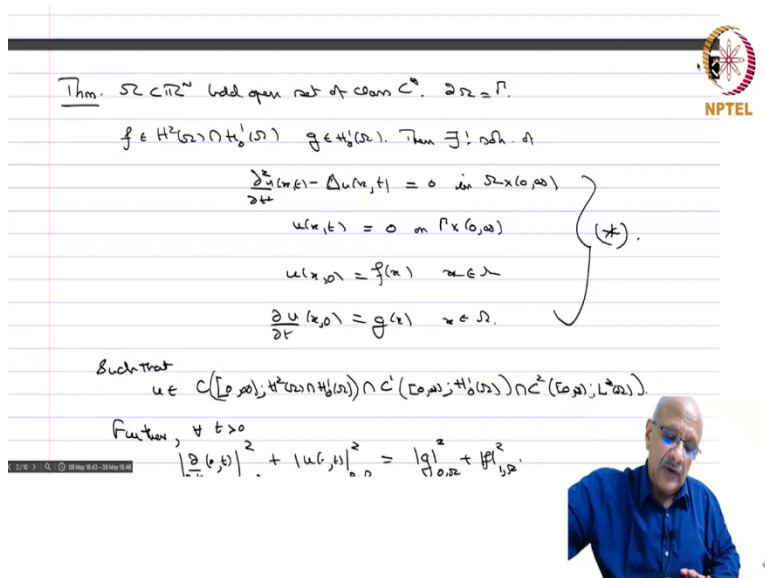 NPTEL
Thm. Ω ⊂ ℝᴺ bdd open set of class C^∞. ∂Ω = Γ.
f ∈ H²(Ω) ∩ H₀¹(Ω) g ∈ H₀¹(Ω). Then ∃! soln. of
∂²u/∂t² (x,t) - Δu(x,t) = 0 in Ω×(0,∞)
u(x,t) = 0 on Γ×(0,∞)
(*).
u(x,0) = f(x) x ∈ Ω
∂u/∂t (x,0) = g(x) x ∈ Ω.
Such that
u ∈ C([0,∞); H²(Ω)∩H₀¹(Ω)) ∩ C¹([0,∞); H₀¹(Ω)) ∩ C²([0,∞); L²(Ω)).
Further, ∀ t>0
|∂ (·,t)|² + |u(·,t)|² = |g|²_{0,Ω} + |f|²_{1,Ω}.
2/10 08 May 18:43 - 08 May 18:46